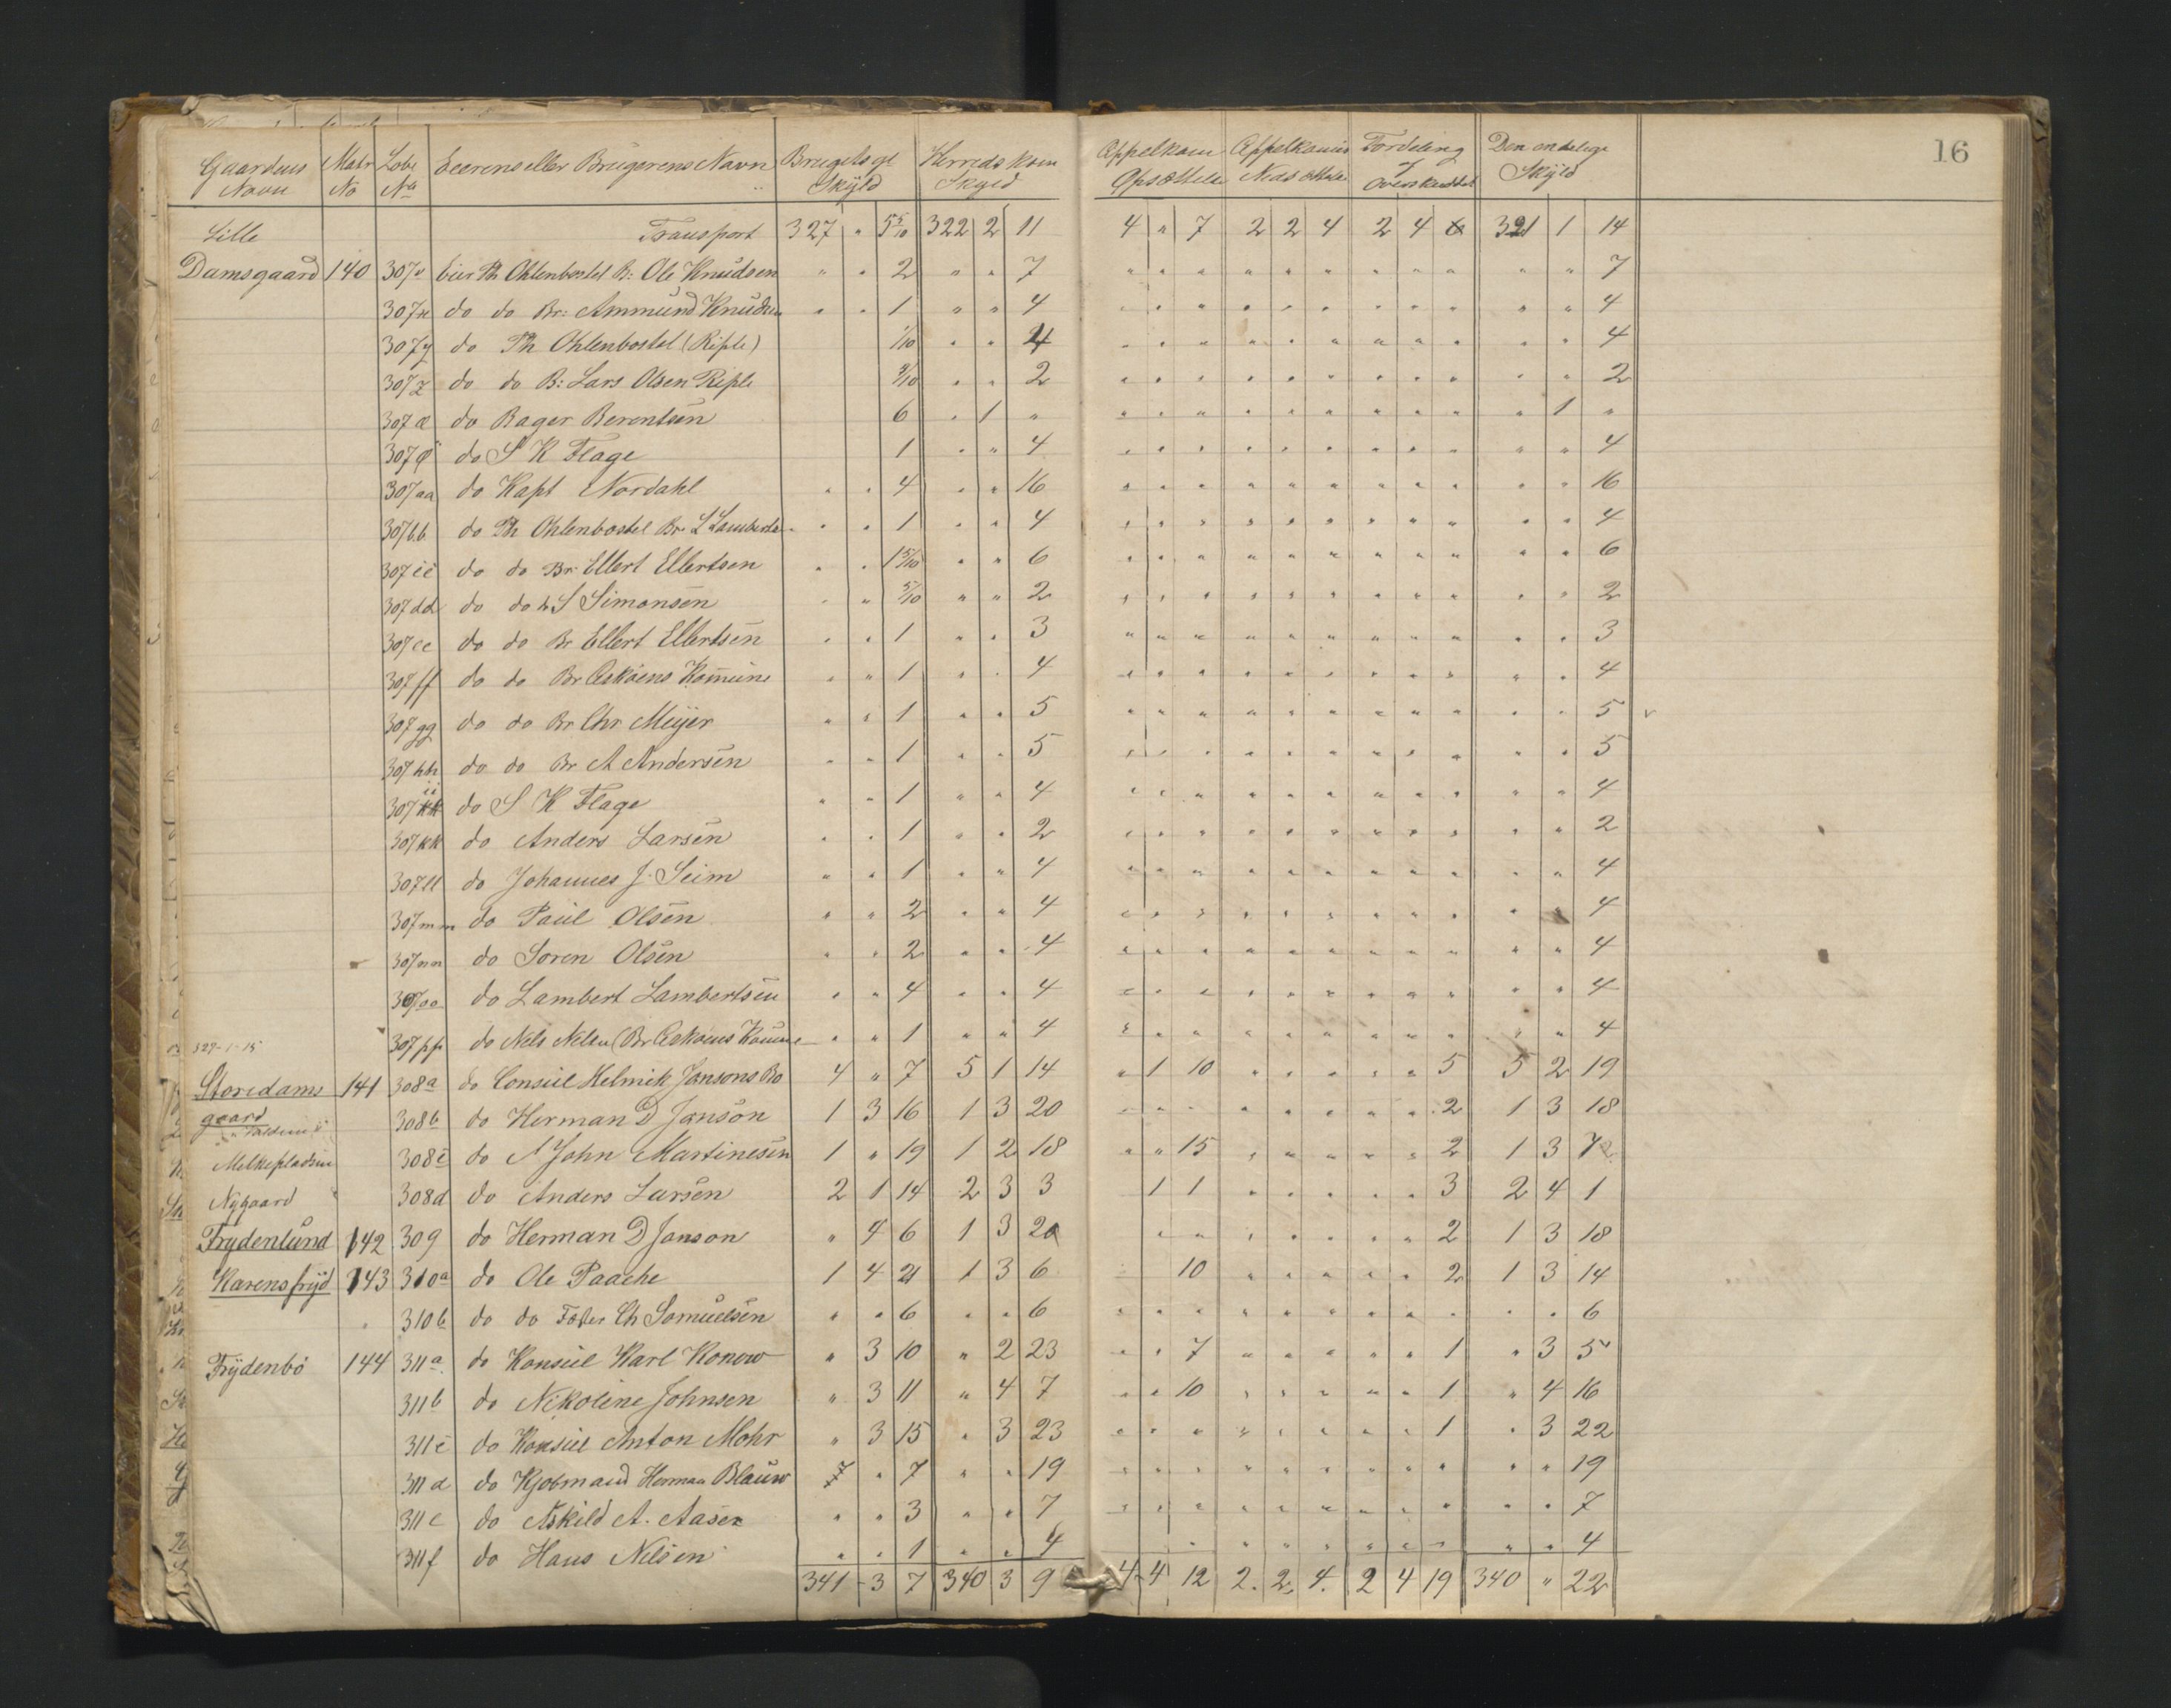 16
Gaardens Navn Matr No Løbe No Eierens eller Brugerens Navn Brugets gl Skyld Herreds kom Skyld Appelkom Opsættelse Appelkomis Nedsættelse Fordeling af Overskuddet Den endelige Skyld
Lille Transport 327 " 5 5/10 322 2 11 4 " 7 2 2 4 2 4 321 1 14
Damsgaard 140 307v Eier Th Ohlenbostel B: Ole Knudsen " " 2 " " 7 " " " " " " " " " " " 7
307x do do Br: Ammund Knudsen " " 1 " " 4 " " " " " " " " " " " 4
307y do Th Ohlenbostel (Riple) 1/10 " " 4 " " " " " " " " " " " 4
307z do do B: Lars Olsen Riple 2/10 " " 2 " " " " " " " " " " " 2
307æ do Bager Berentsen 6 " 1 " " " " " " " " " " " 1 "
307ø do S K Flage 1 " " 4 " " " " " " " " " " " 4
307aa do Kapt Nordahl " " 4 " " 16 " " " " " " " " " " " 16
307bb do Th Ohlenbostel Br L Lamberts " " 1 " " 4 " " " " " " " " " " " 4
307cc do do Br Ellert Ellertsen " " 1 5/10 " " 6 " " " " " " " " " " " 6
307dd do do S Simonsen " " 5/10 " " 2 " " " " " " " " " " " 2
307ee do do Br Ellert Ellertsen " " 1 " " 3 " " " " " " " " " " " 3
307ff do do Br Askøens Komune " " 1 " " 4 " " " " " " " " " " " 4
307gg do do Br Chr Meyer " " 1 " " 5 " " " " " " " " " " " 5 v
307hh do do Br A Andersen " " 1 " " 5 " " " " " " " " " " " 5
307ii do S K Flage " " 1 " " 4 " " " " " " " " " " " 4
307kk do Anders Larsen " " 1 " " 2 " " " " " " " " " " " 2
307ll do Johannes J. Seim " " 1 " " 4 " " " " " " " " " " " 4
307mm do Paul Olsen " " 2 " " 4 " " " " " " " " " " " 4
307nn do Soren Olsen " " 2 " " 4 " " " " " " " " " " " 4
307oo do Lambert Lambertsen " " 4 " " 4 " " " " " " " " " " " 4
327-1-15 307pp do Nels Nelsen (Br Askøens Komune " " 1 " " 4 " " " " " " " " " " " 4
Storedams 141 308a do Consul Helmik Jansons Bo 4 " 7 5 1 14 " 1 10 " " " " " 5 5 2 19
gaard 308b do Herman D Janson 1 3 16 1 3 20 " " " " " " " " 2 1 3 18
Melkepladsen 308c do A John Martinesen 1 " 19 1 2 18 " " 15 " " " " " 2 1 3 7
Nygaard 308d do Anders Larsen 2 1 14 2 3 3 1 1 " " " " " 3 2 4 1
Frydenlund 142 309 do Herman D Janson " 4 6 1 3 20 " " " " " " " 2 1 3 18
Karensfryd 143 310a do Ole Paache 1 4 21 1 3 6 10 " " " " " 2 1 3 14
310b do do Fæster Ch Samuelsen " " 6 " " 6 " " " " " " " " " " " 6
Frydenbø 144 311a do Konsul Karl Konow " 3 10 " 2 23 " " 7 " " " " " 1 " 3 5
311b do Nikoline Johnsen " 3 11 " 4 7 " " 10 " " " " " 1 " 4 16
311c do Konsul Anton Mohr " 3 15 " 3 23 " " " " " " " " 1 " 3 22
311d do Kjøbmand Herman Blauw " 7 " " 19 " " " " " " " " " " " 19
311e do Askild A. Aasen " " 3 " " 7 " " " " " " " " " " " 7
311f do Hans Nilsen " " 1 " " 4 " " " " " " " " " 4
341 3 7 340 3 9 4 4 12 2. 2. 4. 2 4 19 340 " 22